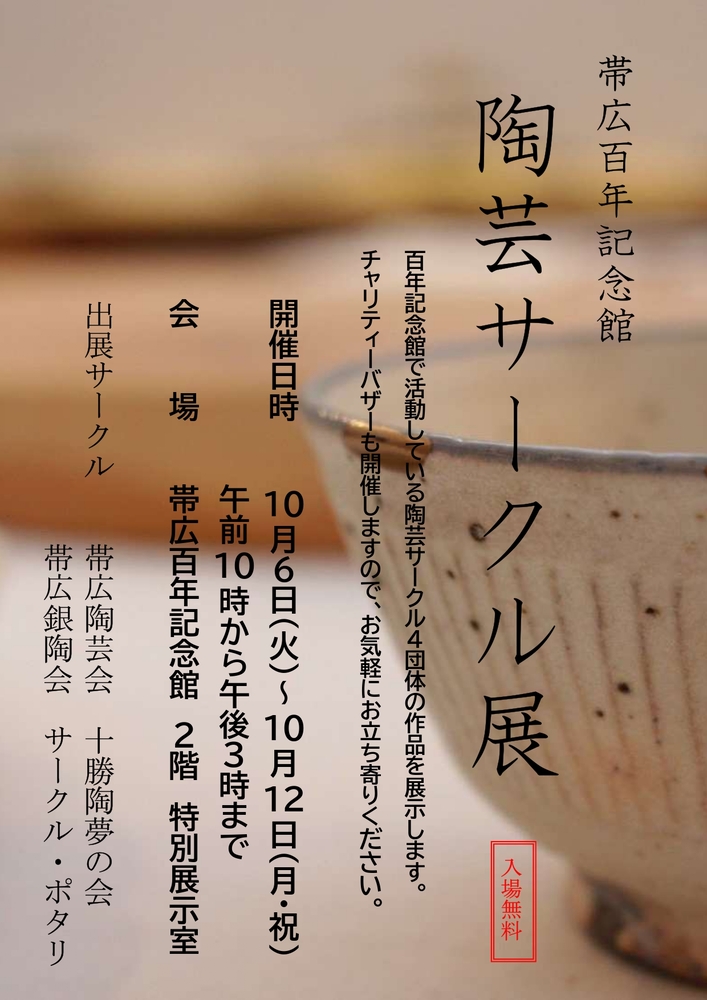 帯広百年記念館
陶芸サークル展
入場無料
百年記念館で活動している陶芸サークル４団体の作品を展示します。
チャリティーバザーも開催しますので、お気軽にお立ち寄りください。
開催日時 10月6日(火)～10月12日(月・祝)
午前10時から午後3時まで
会場 帯広百年記念館 2階 特別展示室
出展サークル 帯広陶芸会 十勝陶夢の会
帯広銀陶会 サークル・ポタリ